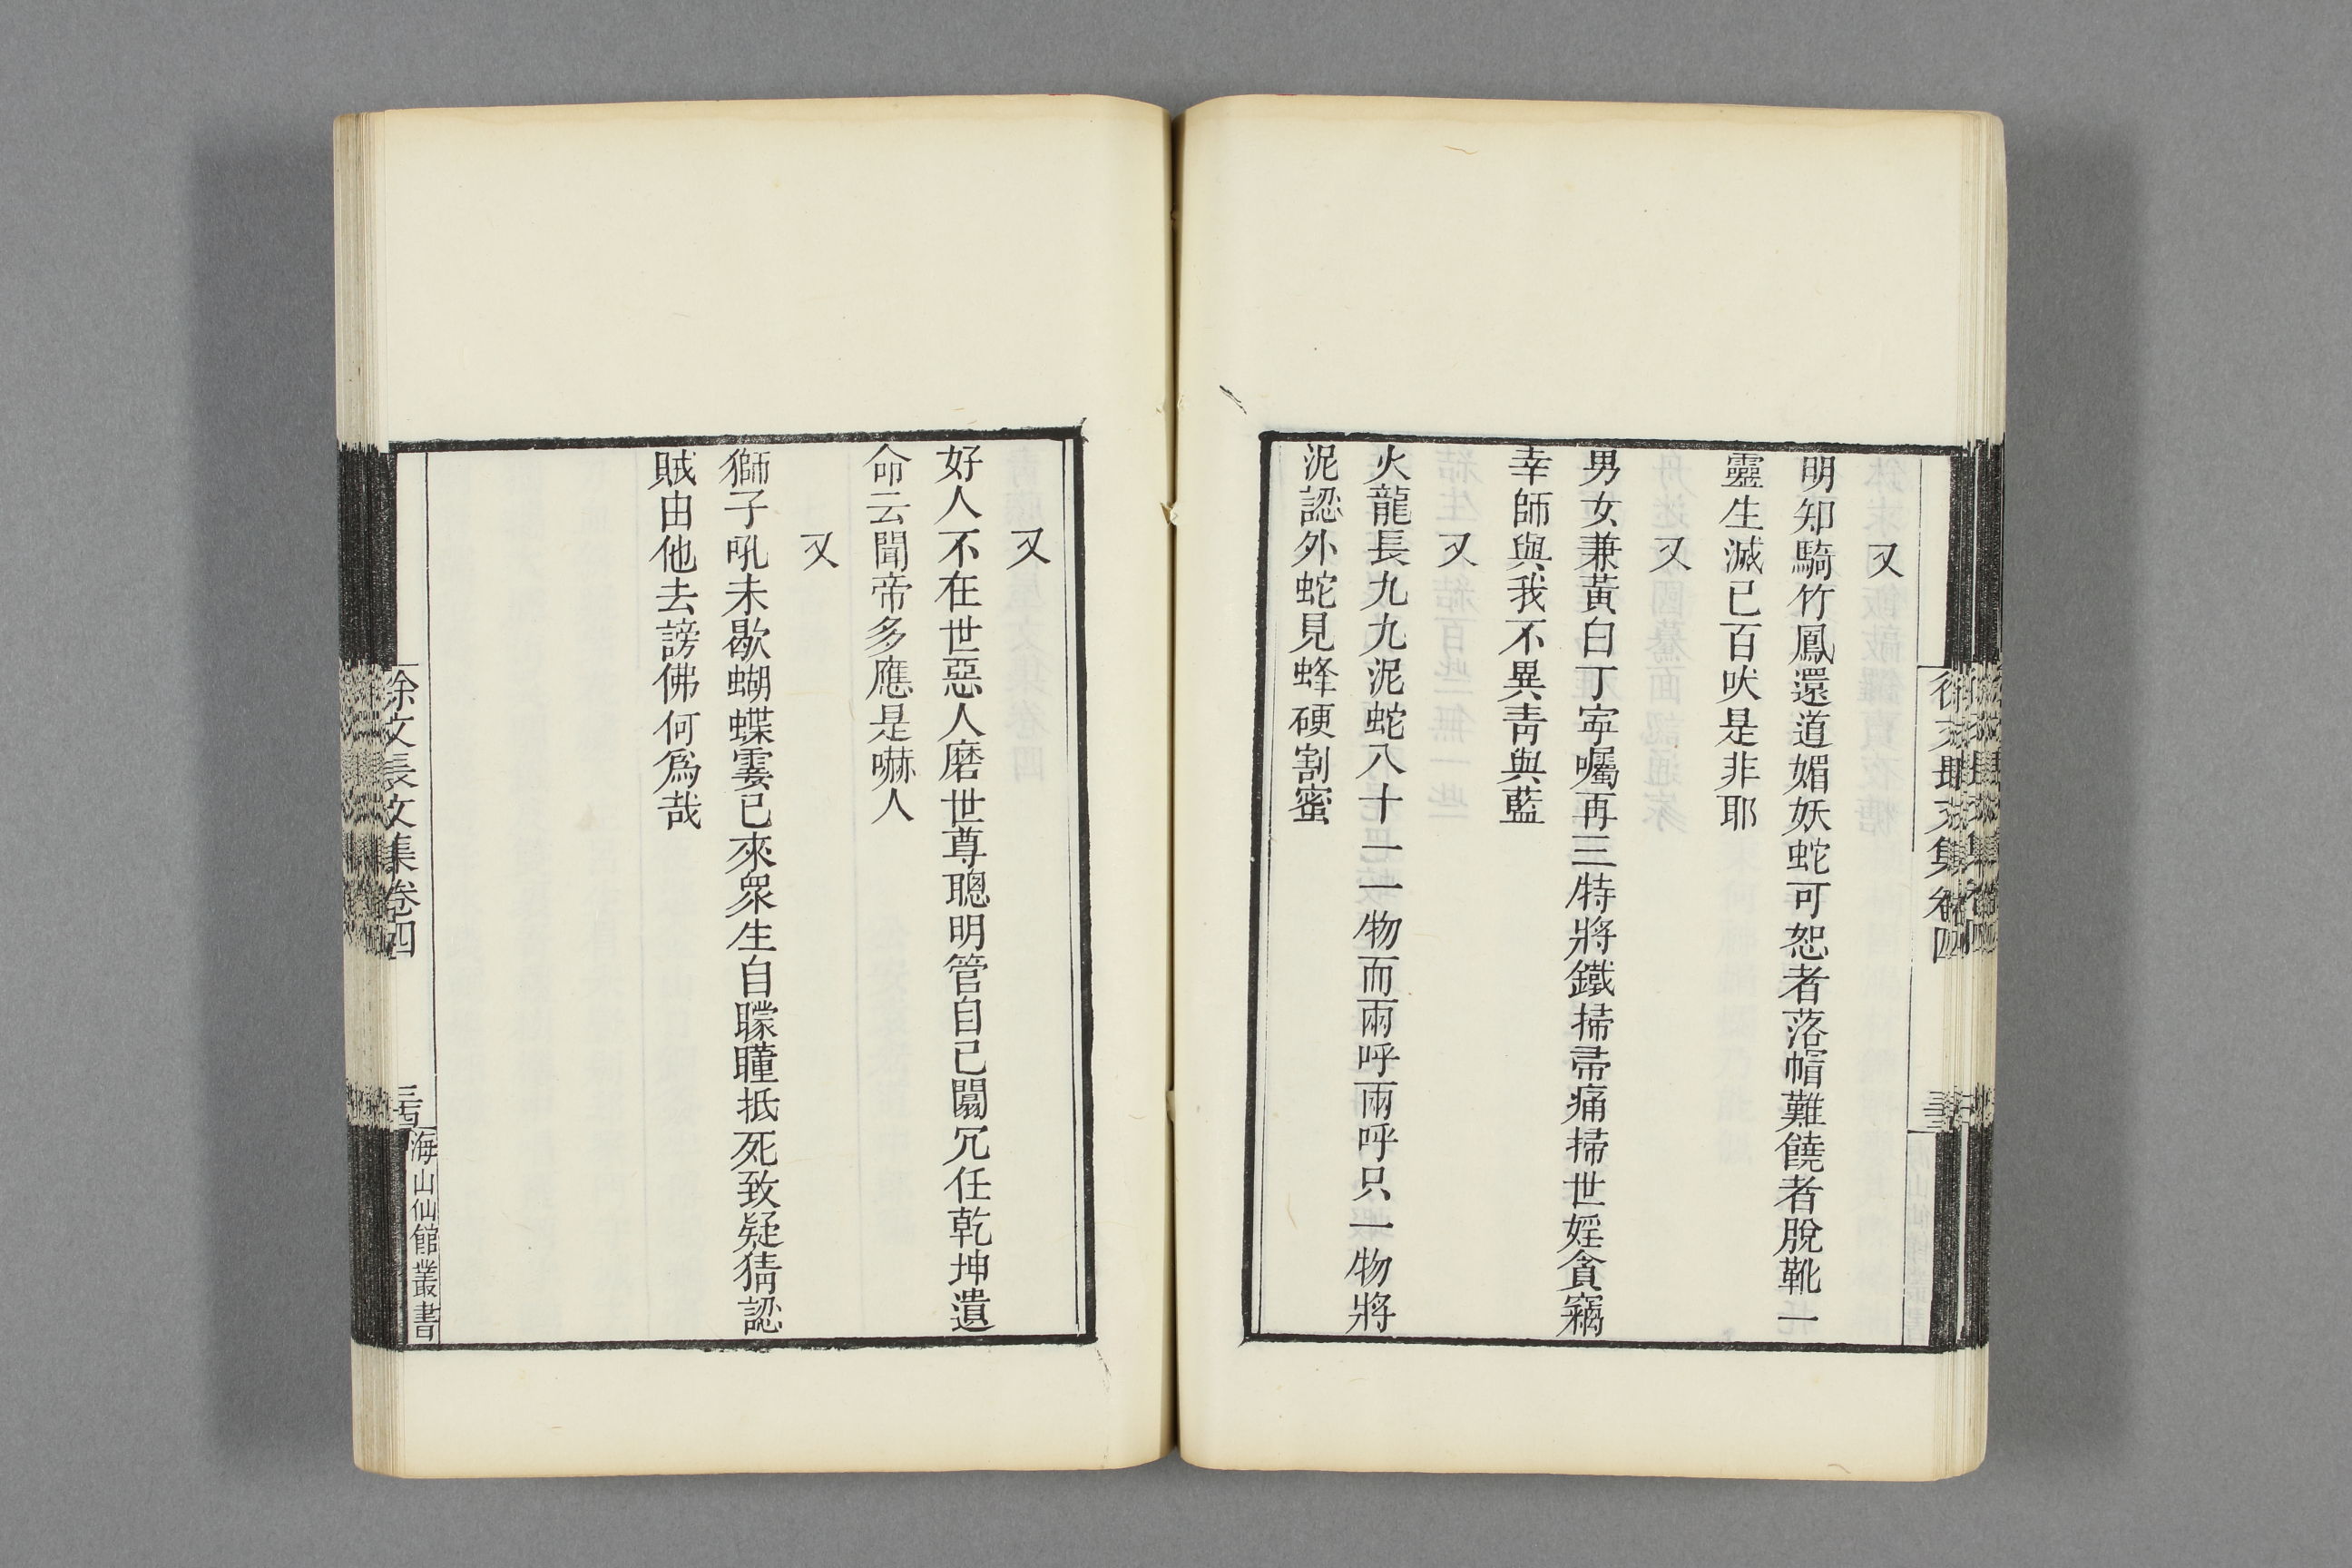 又
明知騎竹鳳還道媚妖蛇可恕者落帽難饒者脫靴一
靈生滅已百吠是非耶
又
男女兼黃白丁寕囑再三特將鐵掃帚痛掃世婬貪竊
幸師與我不異靑與藍
又
火龍長九九泥蛇八十一一物而兩呼兩呼只一物將
泥認外蛇見蜂硬割蜜
又
好人不在世惡人磨世尊聰明管自己闒冗任乾坤遺
命云聞帝多應是嚇人
又
獅子吼未歇蝴蝶霎已來衆生自矇瞳抵死致疑猜認
賊由他去謗佛何爲哉
徐文長文集卷四
海山仙館叢書